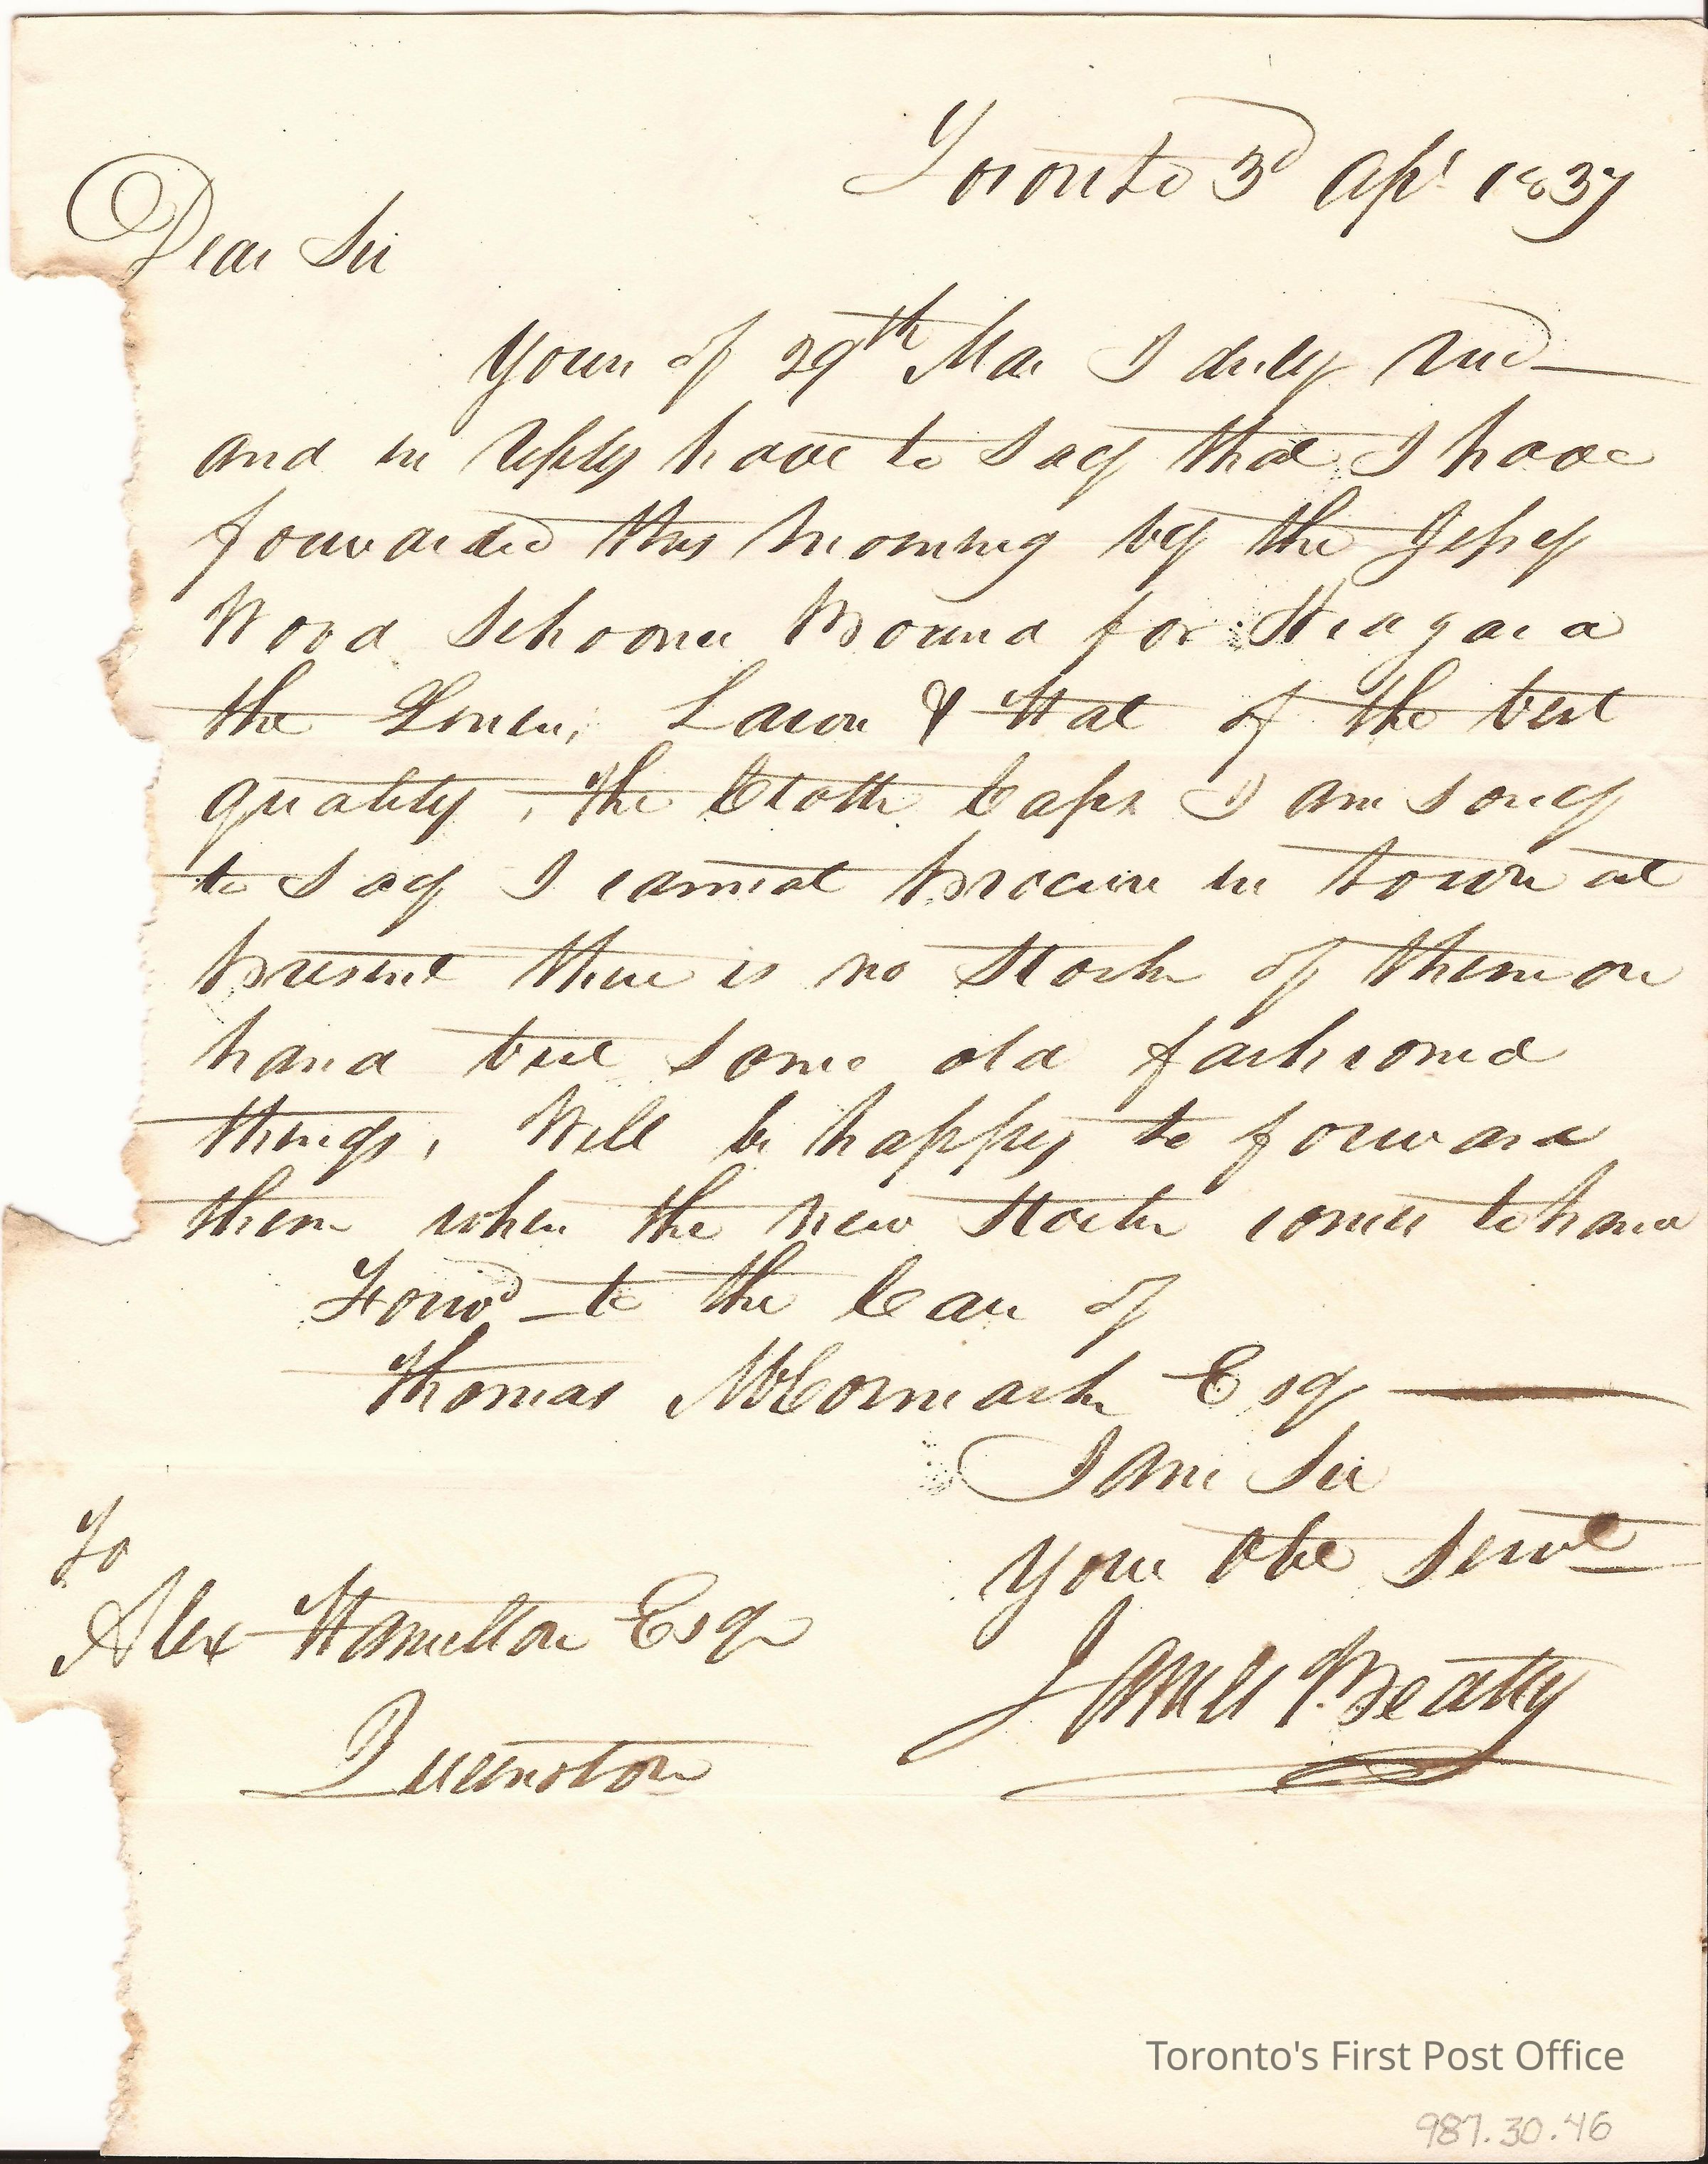 Toronto 3d Apl 1837
Dear Sir
Yours of 29th Mar I duly recd
and in reply have to say that I have
forwarded this morning by the Jessy
Wood Schooner Bound for Niagara
the Linen, Lawn & Hat of the best
quality, the Cloth Caps I am sorry
to say I cannot procure in town at
present there is no Stock of them on
hand but some old fashioned
things, Will be happy to forward
them when the new Stock comes to hand
Forwd to the Care of
Thomas McCormack Esq
I am Sir
your obt Servt
James Beatty
To
Alex Hamilton Esqr
Queenston
Toronto's First Post Office
987.30.46